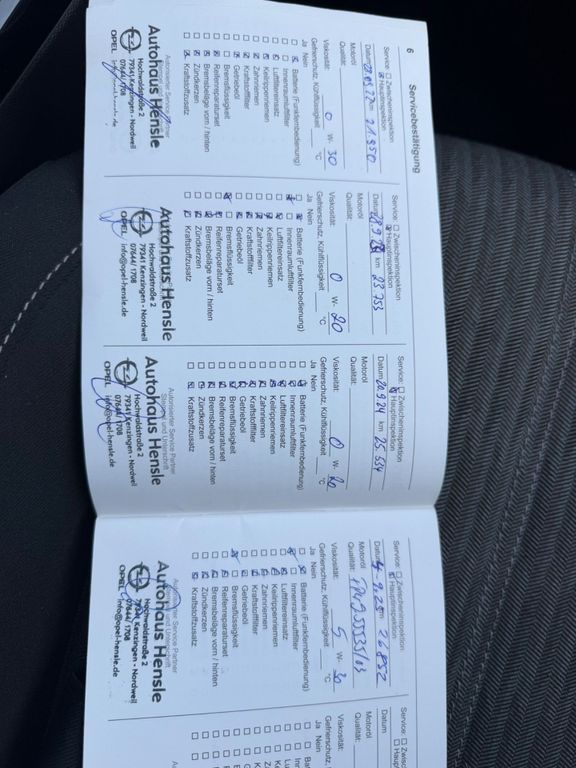 6 Servicebestätigung
Service: ☐ Zwischeninspektion
☒ Hauptinspektion
Datum km 21.950
Motoröl
Qualität:
Viskosität: 0 W- 30
Gefrierschutz, Kühlflüssigkeit °C
Ja Nein
Batterie (Funkfernbedienung)
Innenraumluftfilter
Luftfiltereinsatz
Keilrippenriemen
Zahnriemen
Kraftstofffilter
Getriebeöl
Bremsflüssigkeit
Reifenreparaturset
Bremsbeläge vorn / hinten
Zündkerzen
Kraftstoffzusatz
Autorisierter Service Partner
Autohaus Hensle
Hochwaldstraße 2
79341 Kenzingen - Nordweil
07644/ 1708
OPEL
Service: ☐ Zwischeninspektion
☒ Hauptinspektion
Datum km 23 753
Motoröl
Qualität:
Viskosität: 0 W- 20
Gefrierschutz, Kühlflüssigkeit °C
Ja Nein
Batterie (Funkfernbedienung)
Innenraumluftfilter
Luftfiltereinsatz
Keilrippenriemen
Zahnriemen
Kraftstofffilter
Getriebeöl
Bremsflüssigkeit
Reifenreparaturset
Bremsbeläge vorn / hinten
Zündkerzen
Kraftstoffzusatz
Autohaus Hensle
Hochwaldstraße 2
79341 Kenzingen - Nordweil
07644/ 1708
OPEL info@opel-hensle.de
Service: ☐ Zwischeninspektion
☒ Hauptinspektion
Datum 20.9.24 km 25.534
Motoröl
Qualität:
Viskosität: 0 W- 20
Gefrierschutz, Kühlflüssigkeit °C
Ja Nein
Batterie (Funkfernbedienung)
Innenraumluftfilter
Luftfiltereinsatz
Keilrippenriemen
Zahnriemen
Kraftstofffilter
Getriebeöl
Bremsflüssigkeit
Reifenreparaturset
Bremsbeläge vorn / hinten
Zündkerzen
Kraftstoffzusatz
Autorisierter Service Partner
Stempel und Unterschrift
Autohaus Hensle
Hochwaldstraße 2
79341 Kenzingen - Nordweil
07644/ 1708
OPEL info@opel-hensle.de
Service: ☐ Zwischeninspektion
☒ Hauptinspektion
Datum km 26852
Motoröl
Qualität:
Viskosität: 5 W- 30
Gefrierschutz, Kühlflüssigkeit °C
Ja Nein
Batterie (Funkfernbedienung)
Innenraumluftfilter
Luftfiltereinsatz
Keilrippenriemen
Zahnriemen
Kraftstofffilter
Getriebeöl
Bremsflüssigkeit
Reifenreparaturset
Bremsbeläge vorn / hinten
Zündkerzen
Kraftstoffzusatz
Autorisierter Service Partner
Autohaus Hensle
Hochwaldstraße 2
79341 Kenzingen - Nordweil
07644/ 1708
OPEL info@opel-hensle.de
Service:
Datum
Motoröl
Qualität:
Viskosität:
Gefrierschutz,
Ja Nein